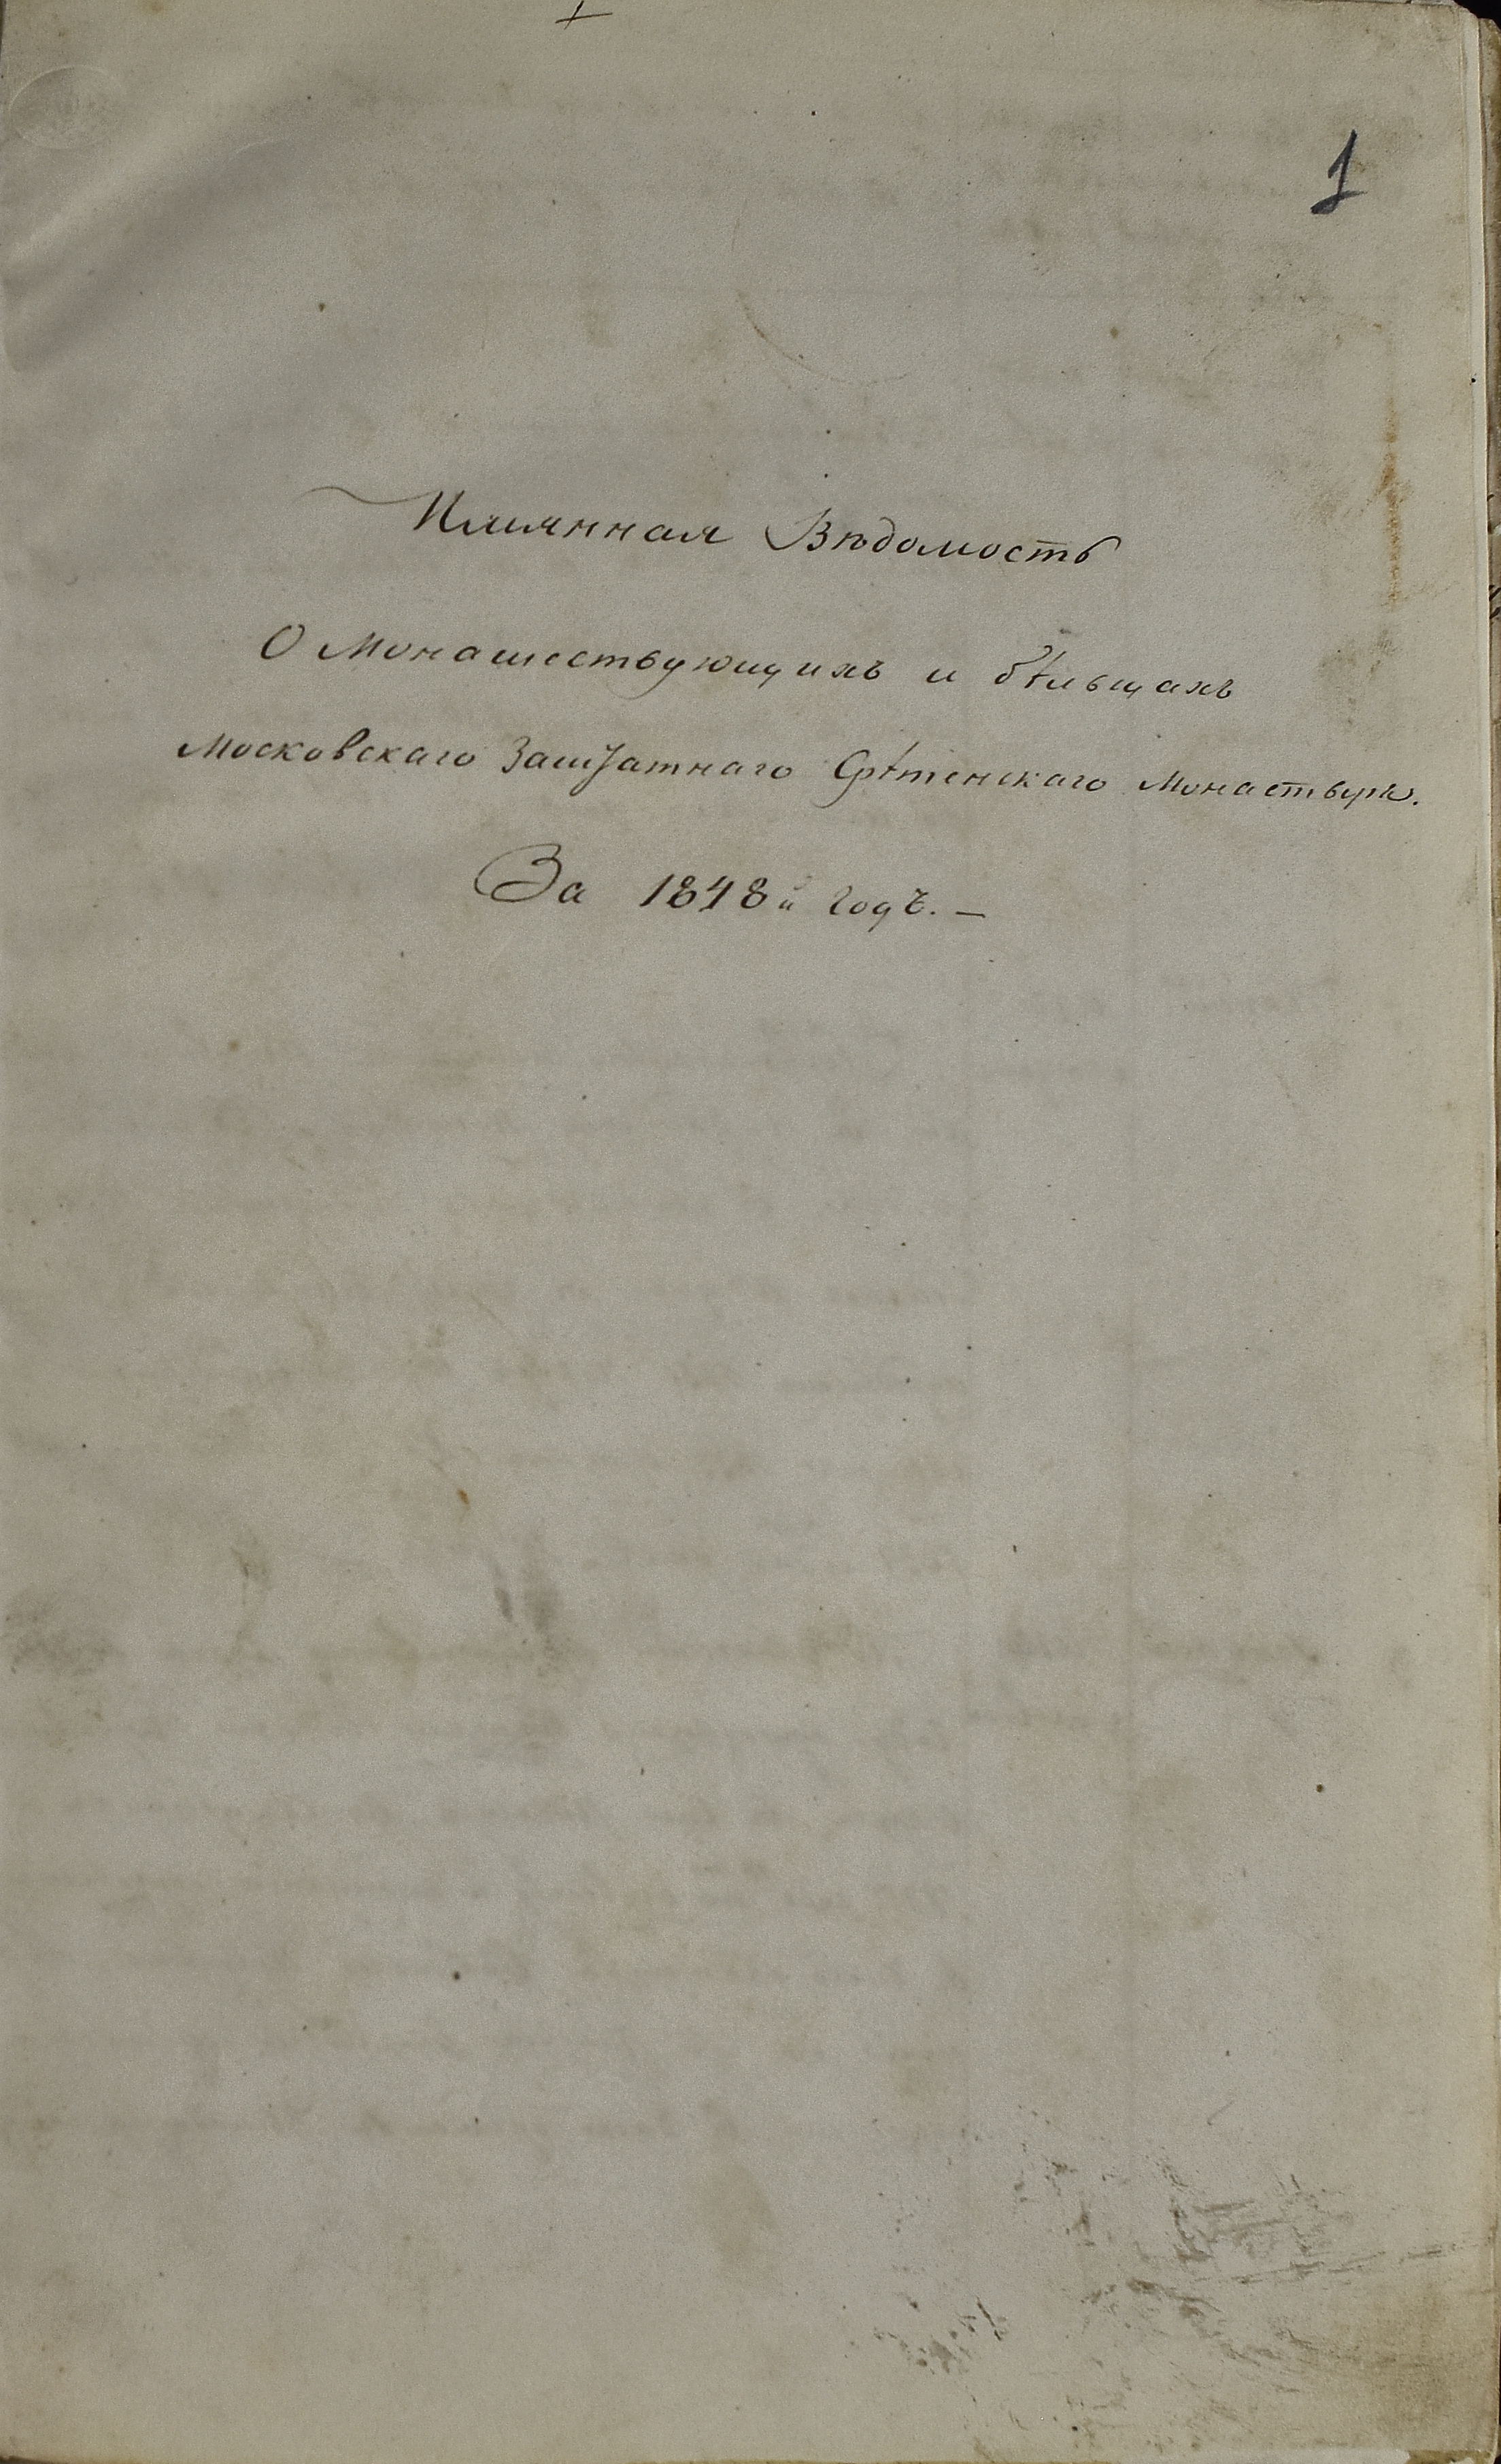 1
Имянная Вѣдомость
О Монашествующихъ и бѣльцахъ
Московскаго Заштатнаго Срѣтенскаго Монастыря.
За 1848й годъ. —